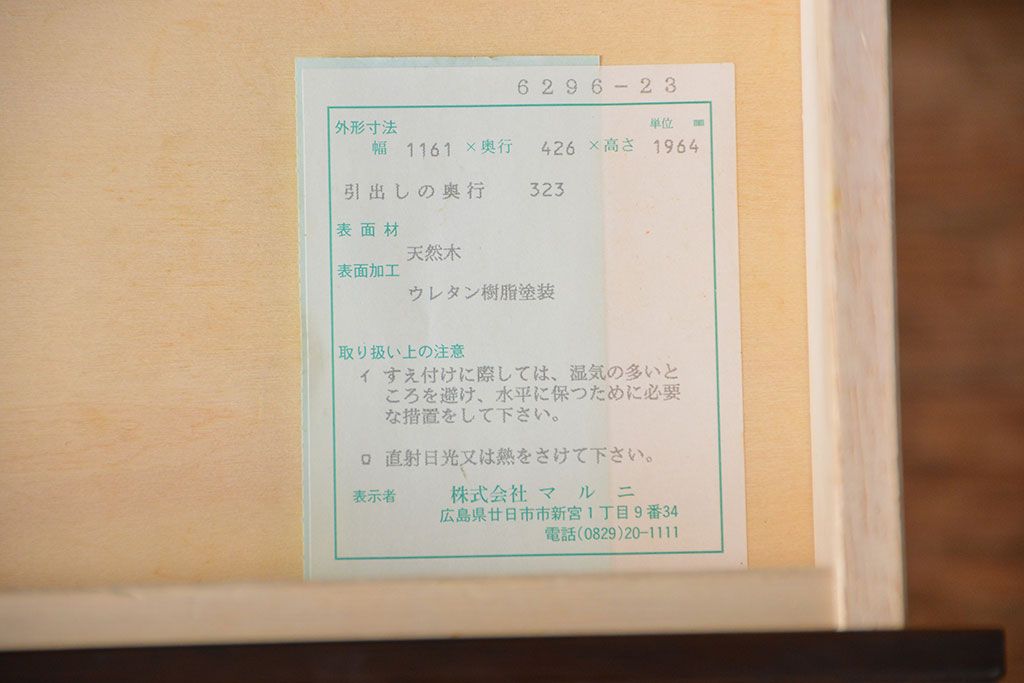 6296-23
外形寸法 単位 ㎜
幅 1161 ×奥行 426 ×高さ 1964
引出しの奥行 323
表面材
天然木
表面加工
ウレタン樹脂塗装
取り扱い上の注意
イ すえ付けに際しては、湿気の多いと
ころを避け、水平に保つために必要
な措置をして下さい。
ロ 直射日光又は熱をさけて下さい。
表示者 株式会社 マルニ
広島県廿日市市新宮1丁目9番34
電話(0829)20-1111